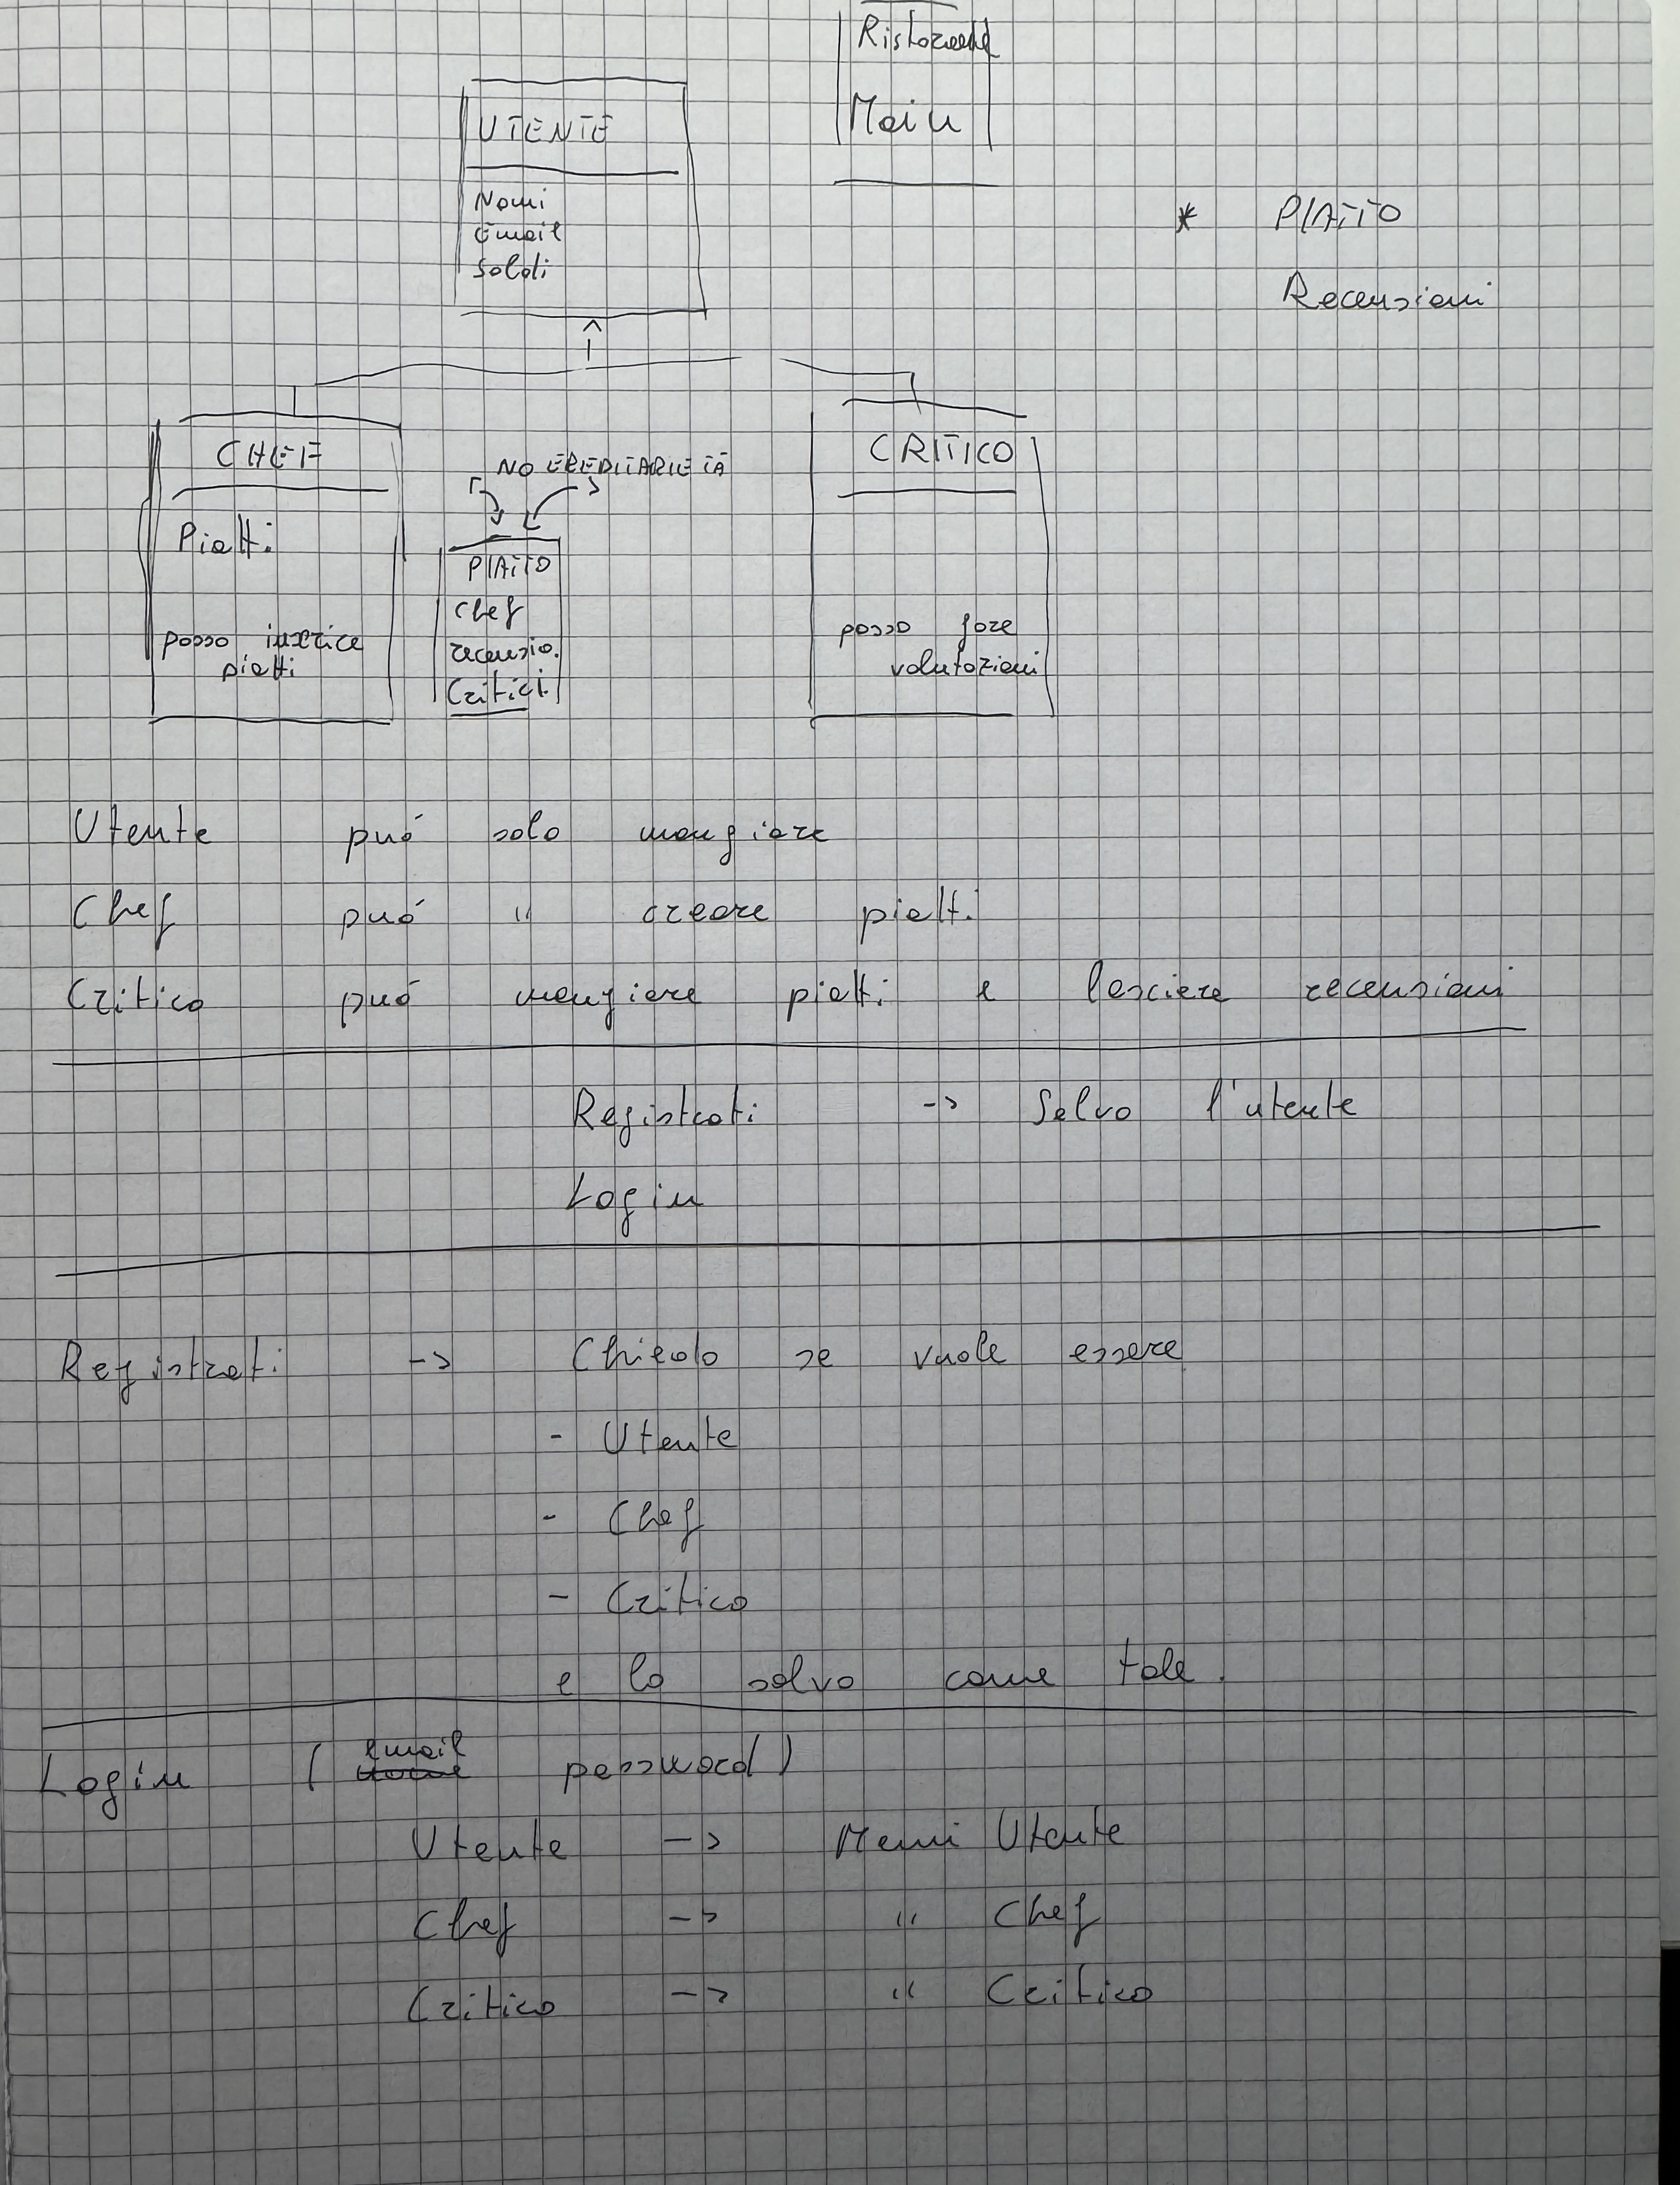 Ristorante
Main
UTENTE
Nomi
Email
Soldi
* PIATTO
Recensioni
CHEF
Piatti
posso inserire
piatti
NO EREDITARIETÀ
PIATTO
Chef
recensio.
Critici
CRITICO
posso fare
valutazioni
Utente può solo mangiare
Chef può " creare piatti
Critico può mangiare piatti e lasciare recensioni
Registrati -> Salvo l'utente
Login
Registrati -> Chiedo se vuole essere
- Utente
- Chef
- Critico
e lo salvo come tale.
Login ( Email password )
Utente -> Menu Utente
Chef -> " Chef
Critico -> " Critico